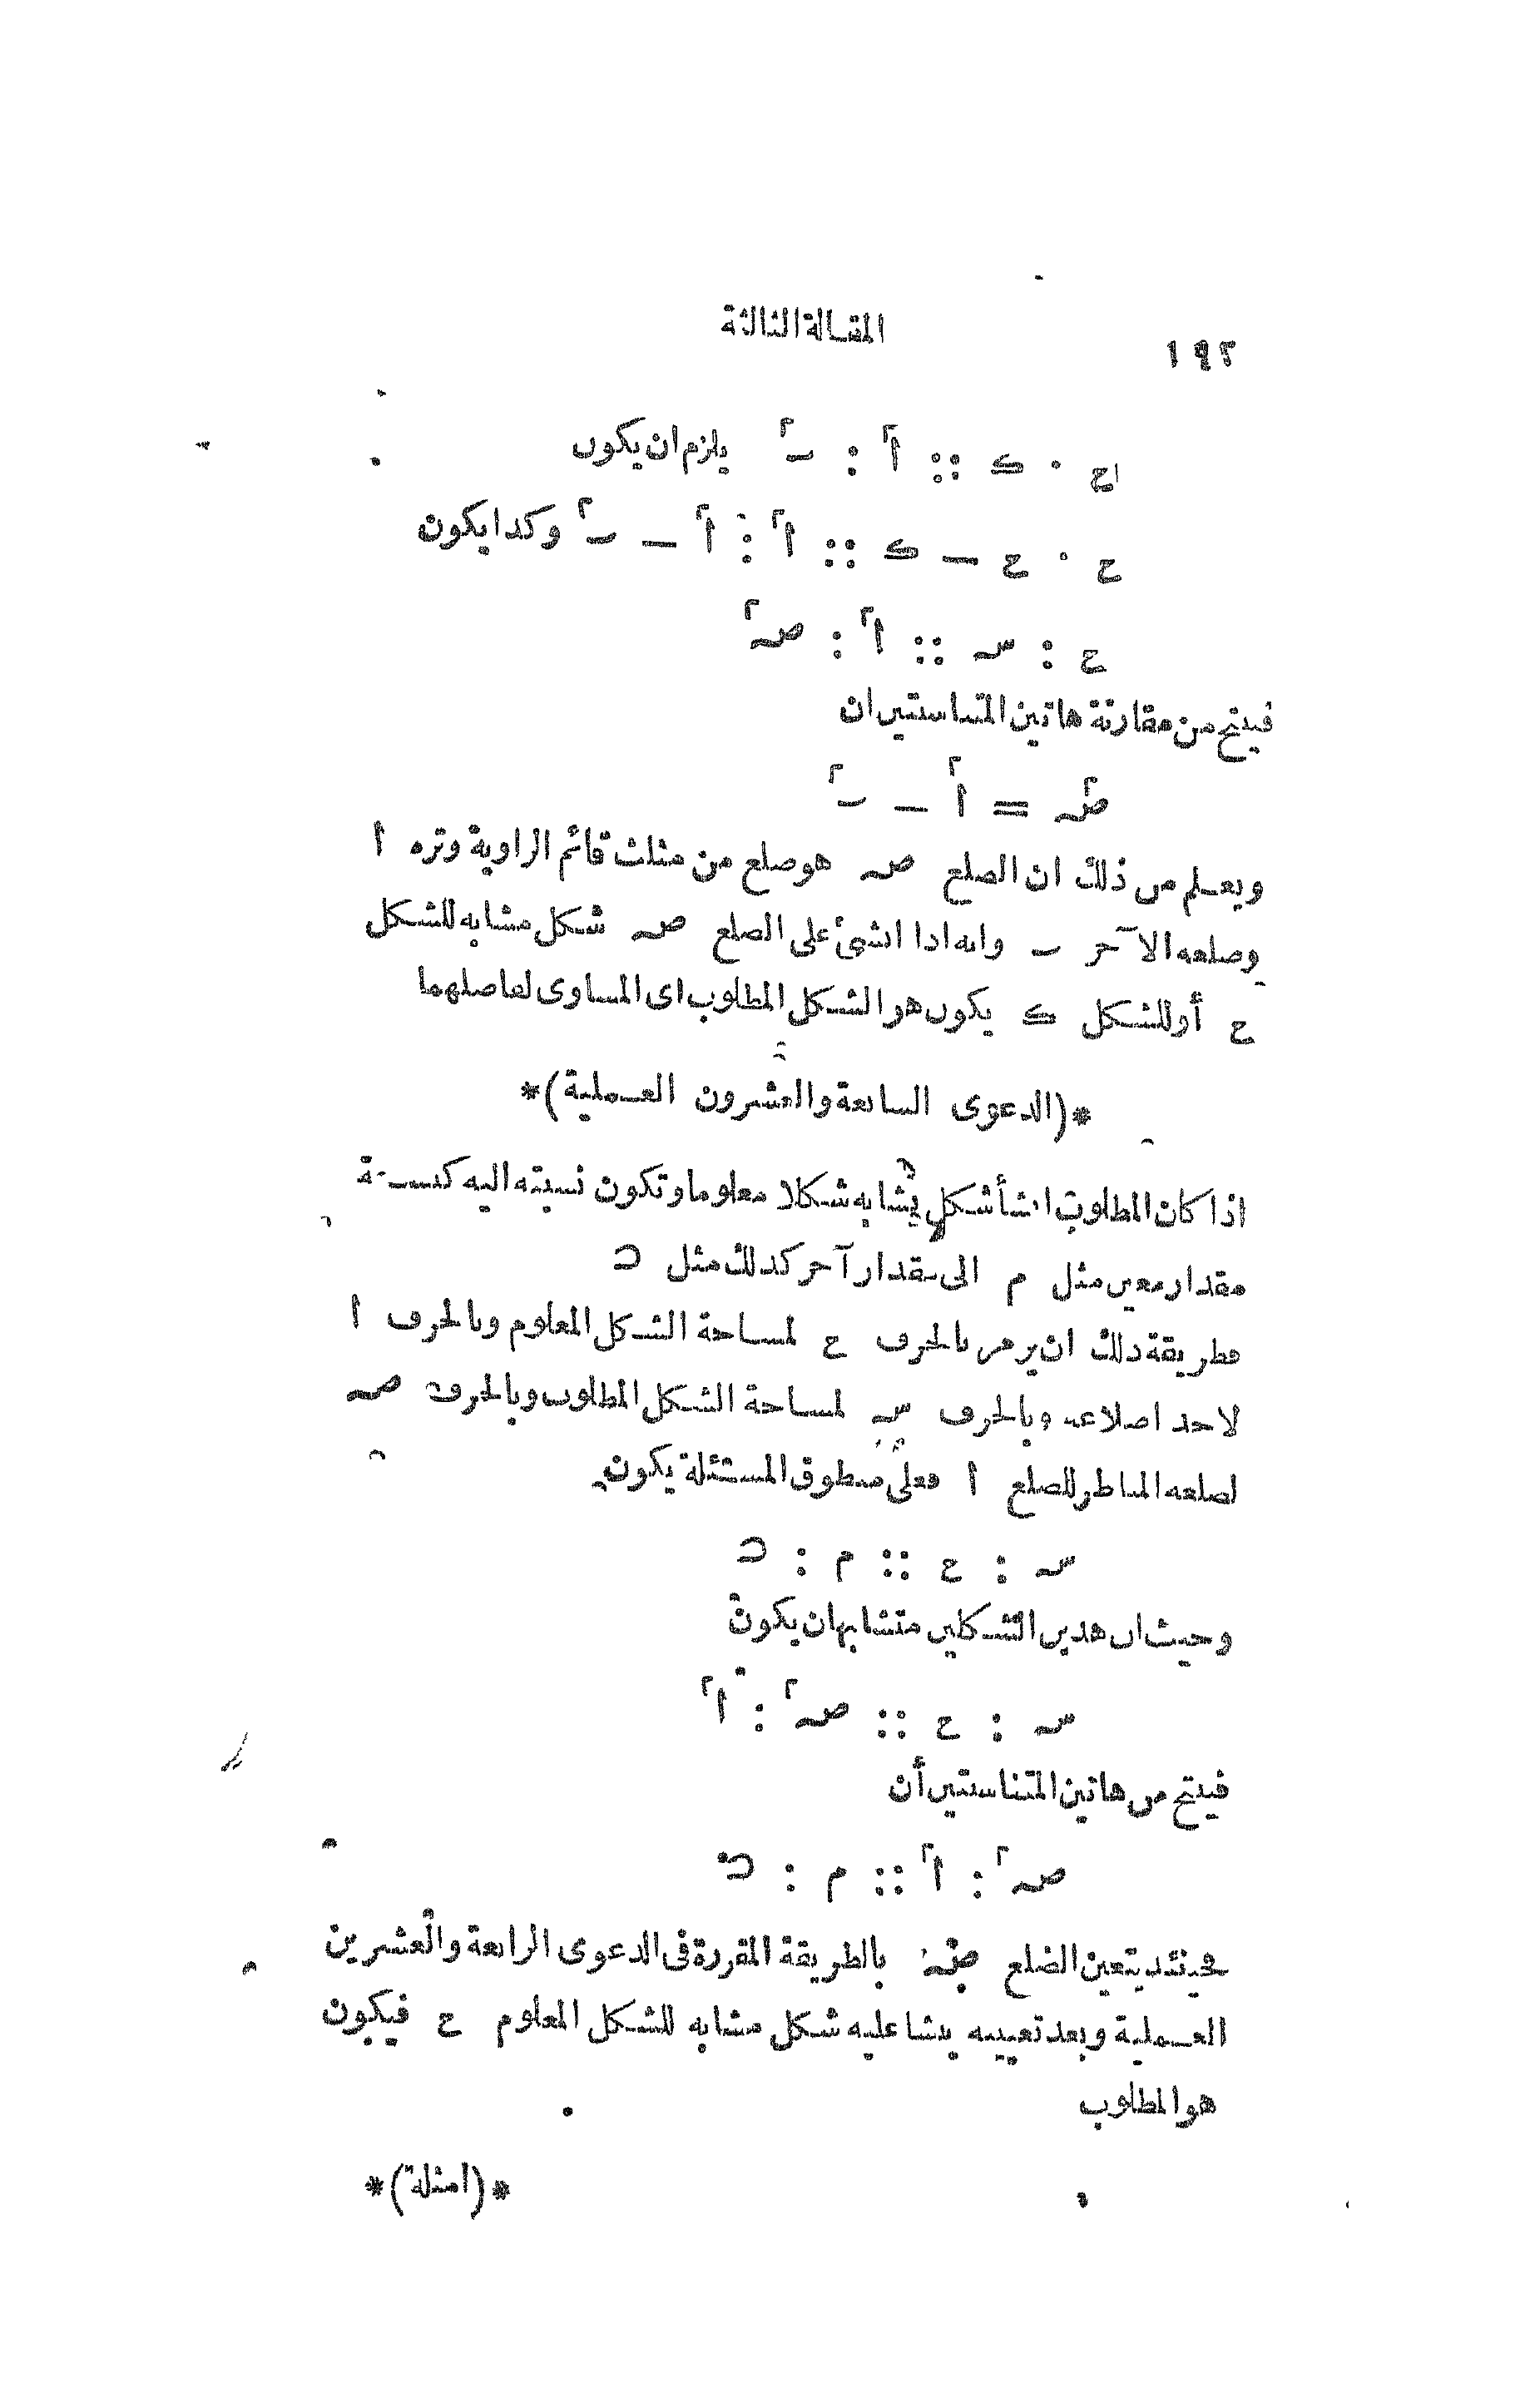 ١٩٢ المقالة الثالثة
ح : ك :: أ٢ : ب٢ يلزم ان يكون
ح : ح — ك :: أ٢ : أ٢ — ب٢ وكذا يكون
ح : س :: أ٢ : صـ٢
فينتج من مقارنة هاتين المتناسبتين ان
صـ٢ = أ٢ — ب٢
ويعلم من ذلك ان الضلع صـ هو ضلع من مثلث قائم الزاوية وتره أ
وضلعه الآخر ب وانه اذا انشئ على الضلع صـ شكل مشابه للشكل
ح أو للشكل ك يكون هو الشكل المطلوب اى المساوى لتفاضلهما
*(الدعوى السابعة والعشرون العملية)*
اذا كان المطلوب انشأ شكل يشابه شكلا معلوما وتكون نسبته اليه كنسبة
مقدار معين مثل م الى مقدار آخر كذلك مثل ن
فطريقة ذلك ان يرمز بالحرف ح لمساحة الشكل المعلوم وبالحرف أ
لاحد اضلاعه وبالحرف س لمساحة الشكل المطلوب وبالحرف صـ
لضلعه المناظر للضلع أ فعلى منطوق المسئلة يكون
س : ح :: م : ن
وحيث ان هذين الشكلين متشابهان يكون
س : ح :: صـ٢ : أ٢
فينتج من هاتين المتناسبتين أن
صـ٢ : أ٢ :: م : ن
فحينئذ يتعين الضلع صـ بالطريقة المقررة فى الدعوى الرابعة والعشرين
العملية وبعد تعيينه ينشا عليه شكل مشابه للشكل المعلوم ح فيكون
هو المطلوب
*(امثلة)*